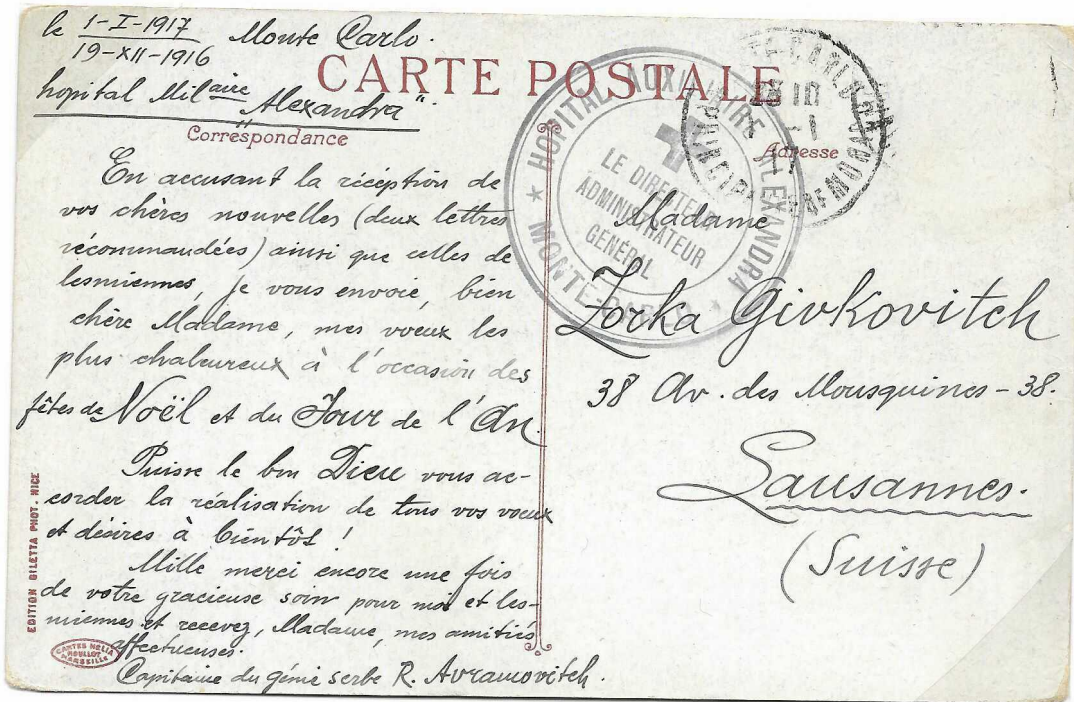 le 1-I-1917
19-XII-1916
Monte Carlo.
hopital Milaire "Alexandra".
CARTE POSTALE
Correspondance
Adresse
En accusant la récéption de
vos chères nouvelles (deux lettres
récommandées) ainsi que celles de
lesmiennes, je vous envoie, bien
chère Madame, mes vœux les
plus chaleureux à l'occasion des
fêtes de Noël et du Jour de l'An.
Puisse le bon Dieu vous ac-
corder la réalisation de tous vos vœux
et désires à bientôt !
Mille merci encore une fois
de votre gracieuse soin pour moi et les-
miennes et recevez, Madame, mes amitiés
affectueuses.
Capitaine du génie serbe R. Avramovitch.
Madame
Zorka Givkovitch
38 Av. des Mousquines - 38.
Lausannes.
(Suisse)
HOPITAL AUXILIAIRE ALEXANDRA
★ MONTE-CARLO ★
LE DIRECTEUR
ADMINISTRATEUR
GÉNÉRAL
EDITION GILETTA PHOT. NICE
CARTES NELIA
MOULLOT
MARSEILLE